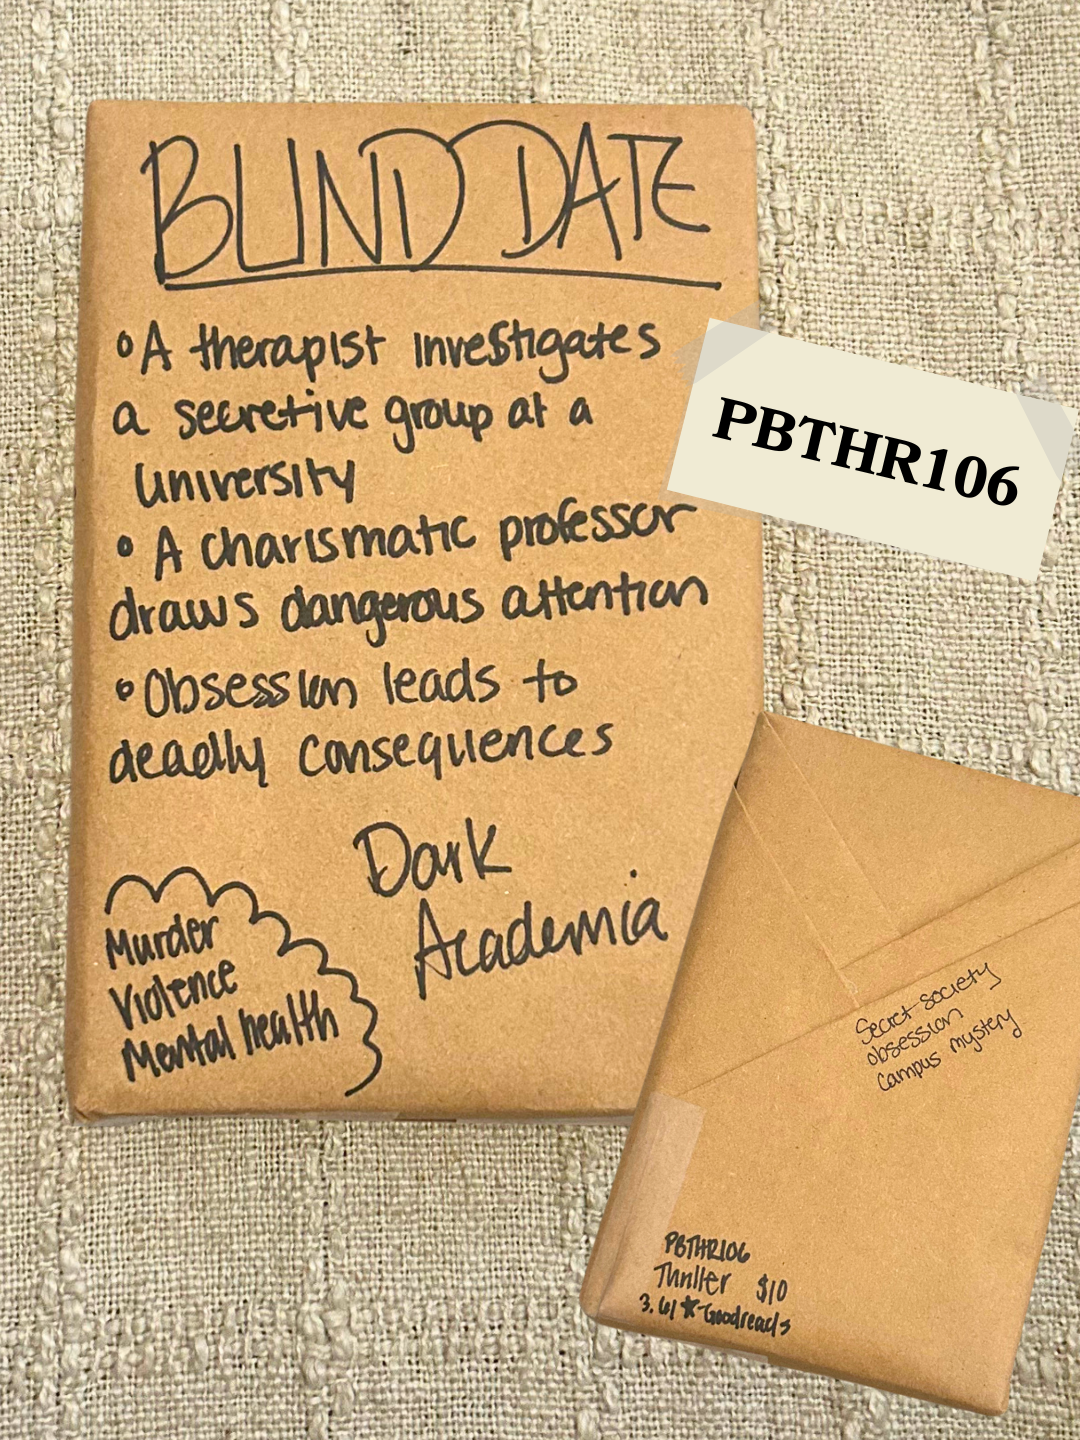 BLIND DATE
• A therapist investigates
a secretive group at a
university
• A charismatic professor
draws dangerous attention
• Obsession leads to
deadly consequences
Dark
Academia
Murder
Violence
Mental health
PBTHR106
Secret society
obsession
campus mystery
PBTHR106
Thriller $10
3.61 ★ Goodreads